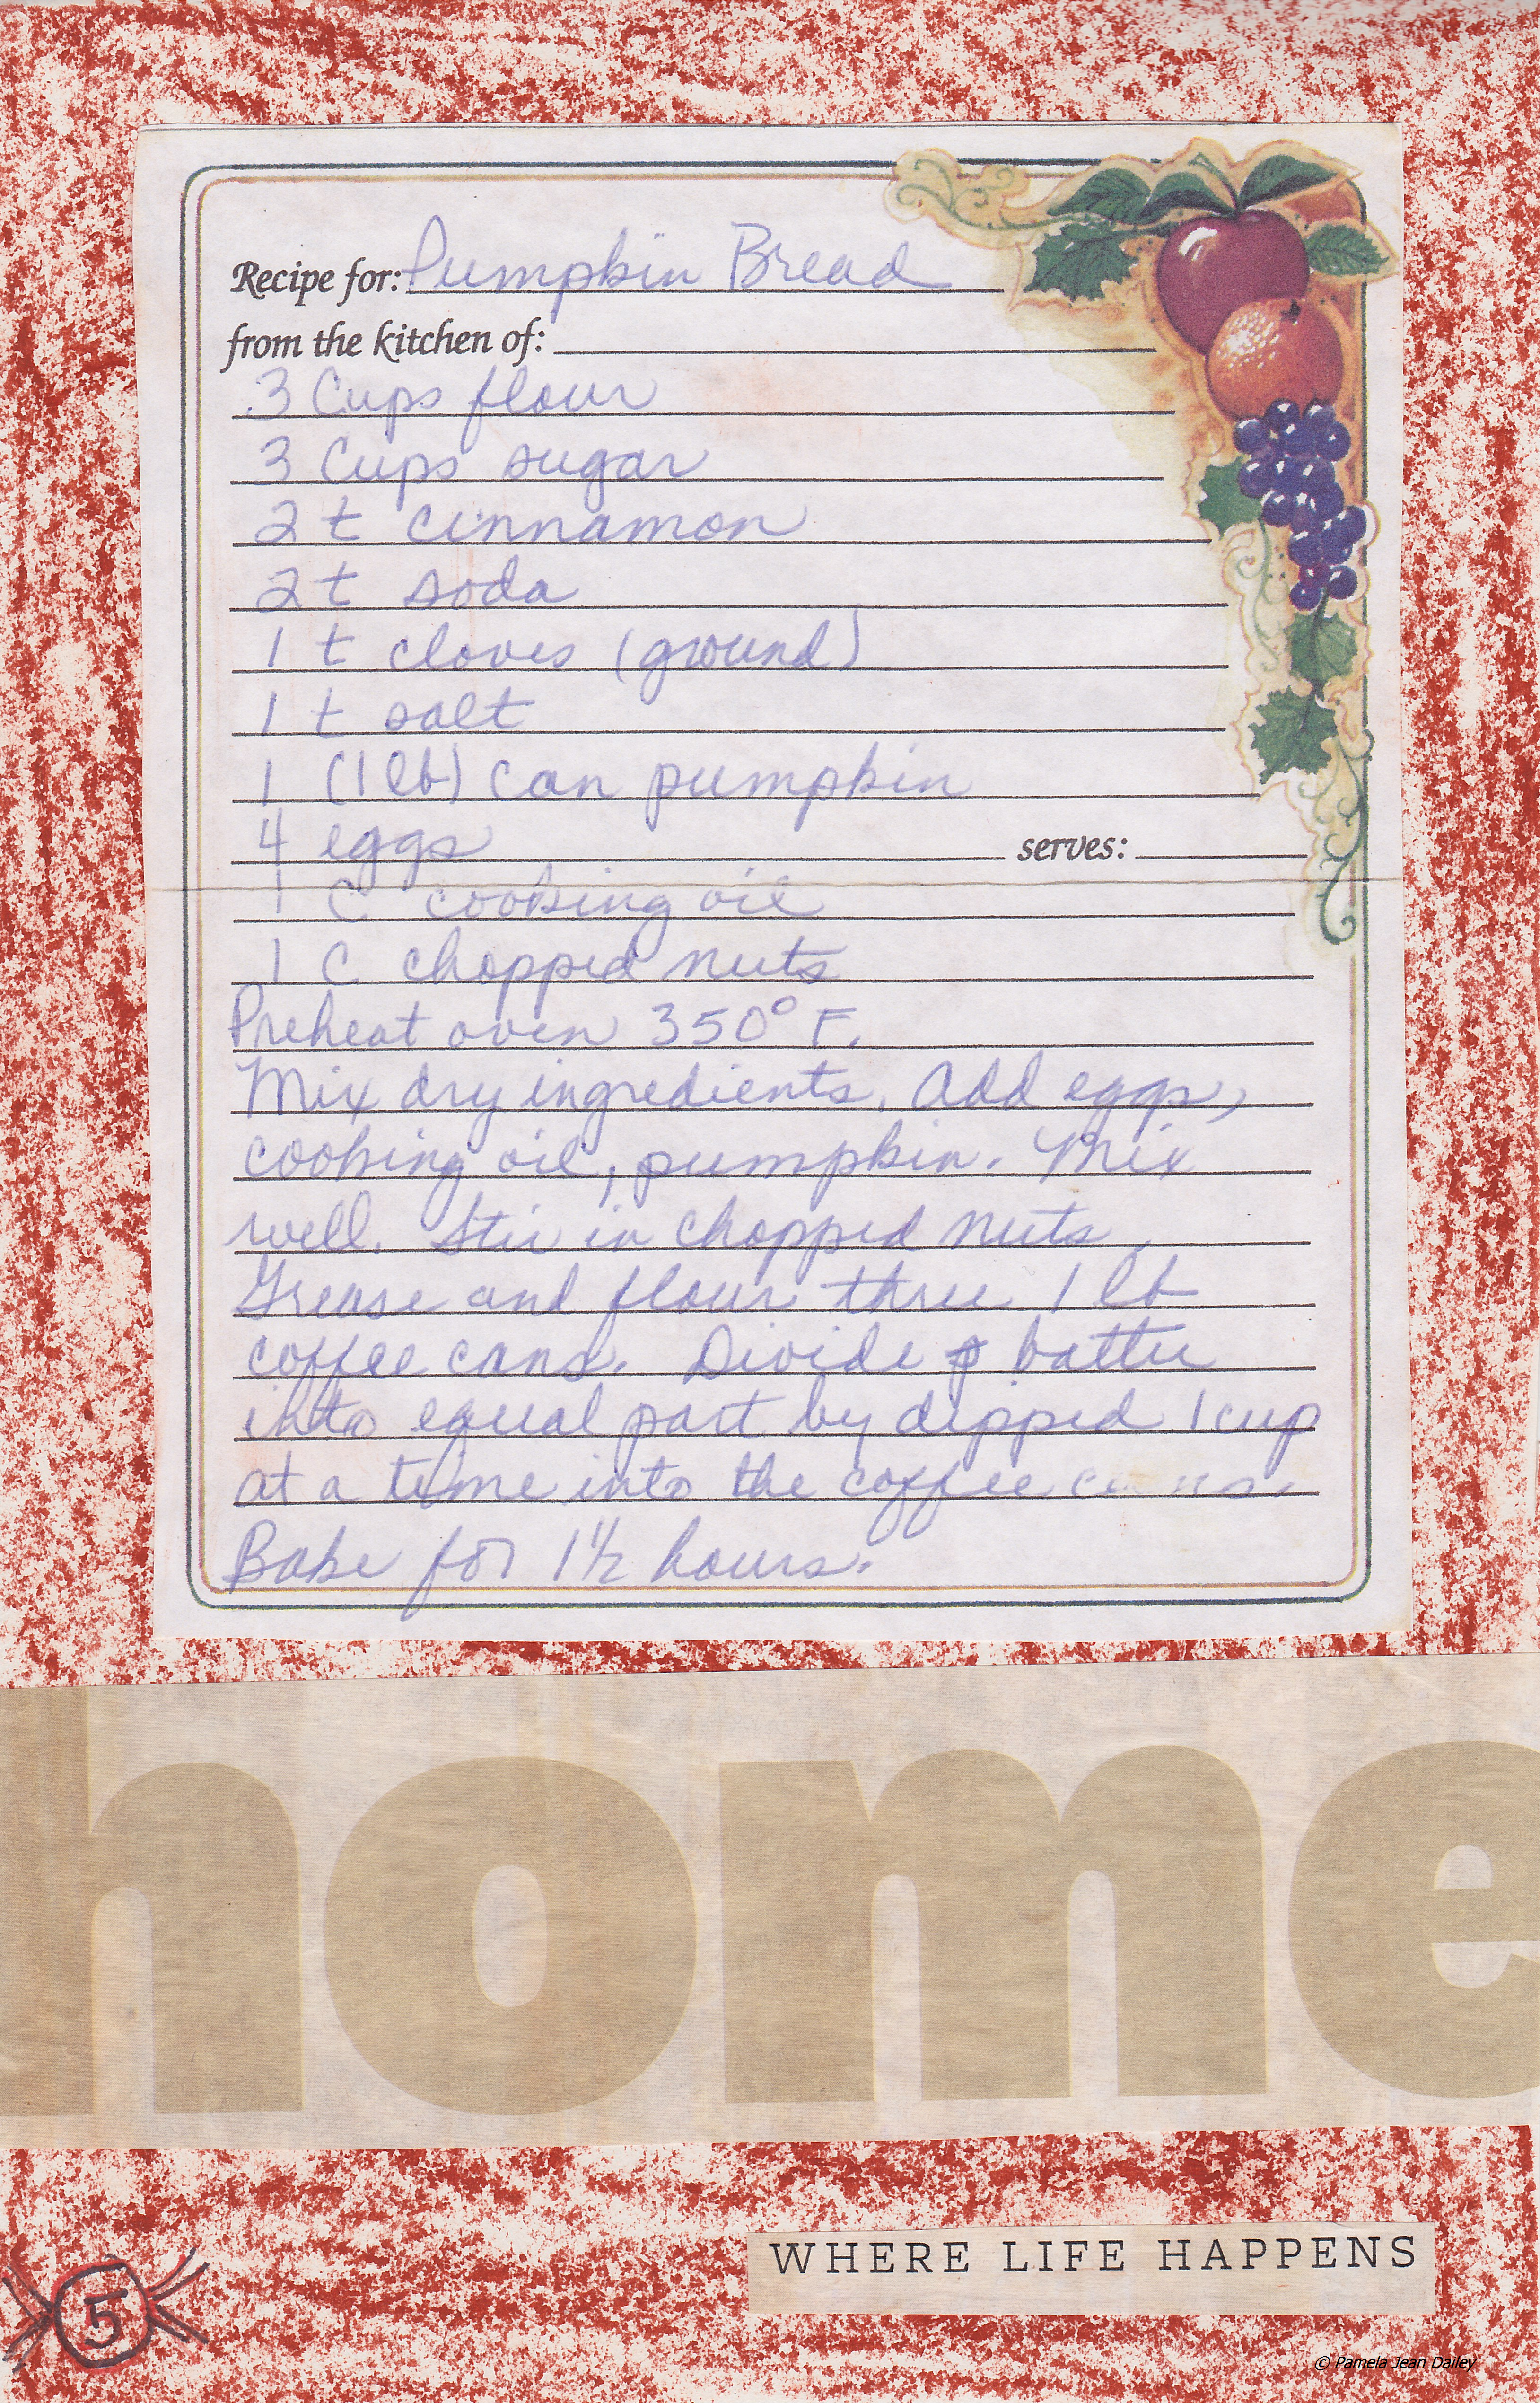 Recipe for: Pumpkin Bread
from the kitchen of:
3 Cups flour
3 Cups sugar
2 t cinnamon
2 t soda
1 t cloves (ground)
1 t salt
1 (1 lb) can pumpkin
4 eggs serves:
1 C cooking oil
1 C chopped nuts
Preheat oven 350° F.
Mix dry ingredients. Add eggs,
cooking oil, pumpkin. Mix
well. Stir in chopped nuts.
Grease and flour three 1 lb
coffee cans. Divide batter
into equal part by dipped 1 cup
at a time into the coffee cans.
Bake for 1 1/2 hours.
home
WHERE LIFE HAPPENS
5
© Pamela Jean Dailey